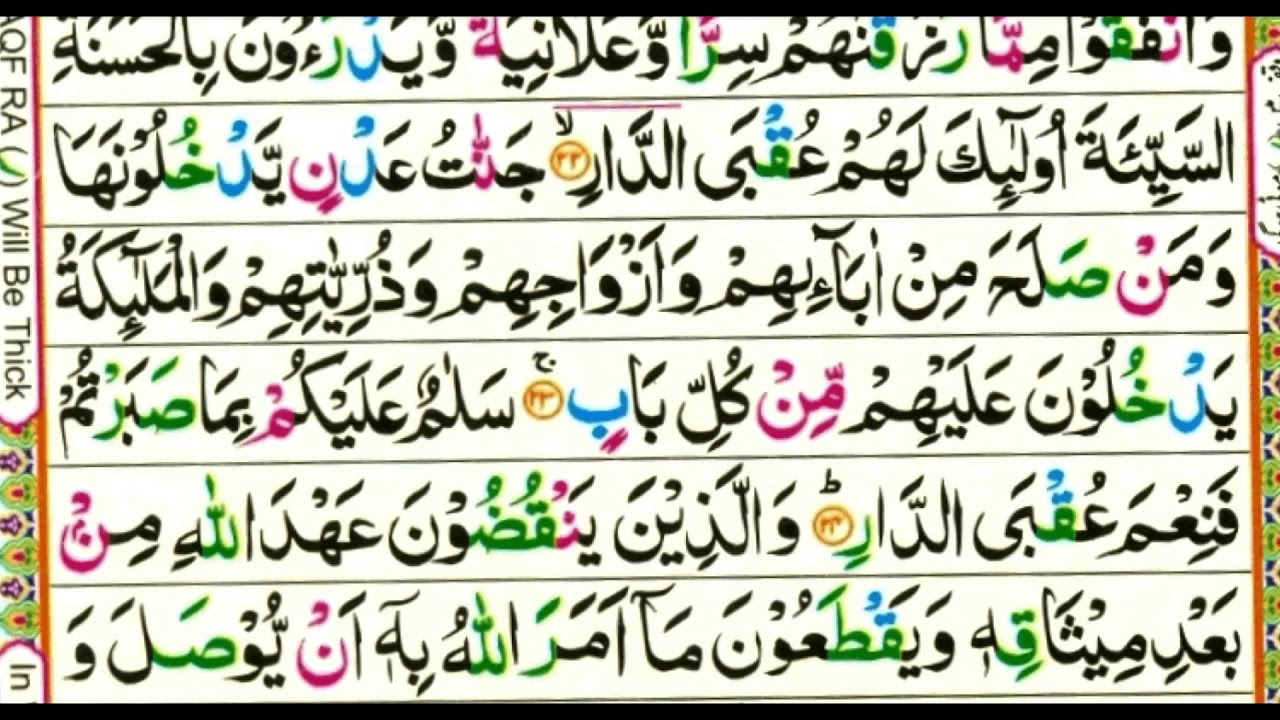 وَاَنْفَقُوْا مِمَّا رَزَقْنٰهُمْ سِرًّا وَّعَلَانِيَةً وَّيَدْرَءُوْنَ بِالْحَسَنَةِ
السَّيِّئَةَ اُولٰٓئِكَ لَهُمْ عُقْبَى الدَّارِۙ‏﴿۲۲﴾ جَنّٰتُ عَدْنٍ يَّدْخُلُوْنَهَا
وَمَنْ صَلَحَ مِنْ اٰبَآئِهِمْ وَاَزْوَاجِهِمْ وَذُرِّيّٰتِهِمْ وَالْمَلٰٓئِكَةُ
يَدْخُلُوْنَ عَلَيْهِمْ مِّنْ كُلِّ بَابٍۚ‏﴿۲۳﴾ سَلٰمٌ عَلَيْكُمْ بِمَا صَبَرْتُمْ
فَنِعْمَ عُقْبَى الدَّارِؕ‏﴿۲۴﴾ وَالَّذِيْنَ يَنْقُضُوْنَ عَهْدَ اللّٰهِ مِنْۢ
بَعْدِ مِيْثَاقِهٖ وَيَقْطَعُوْنَ مَاۤ اَمَرَ اللّٰهُ بِهٖۤ اَنْ يُّوْصَلَ وَ
AQF RA (
) Will Be Thick
In